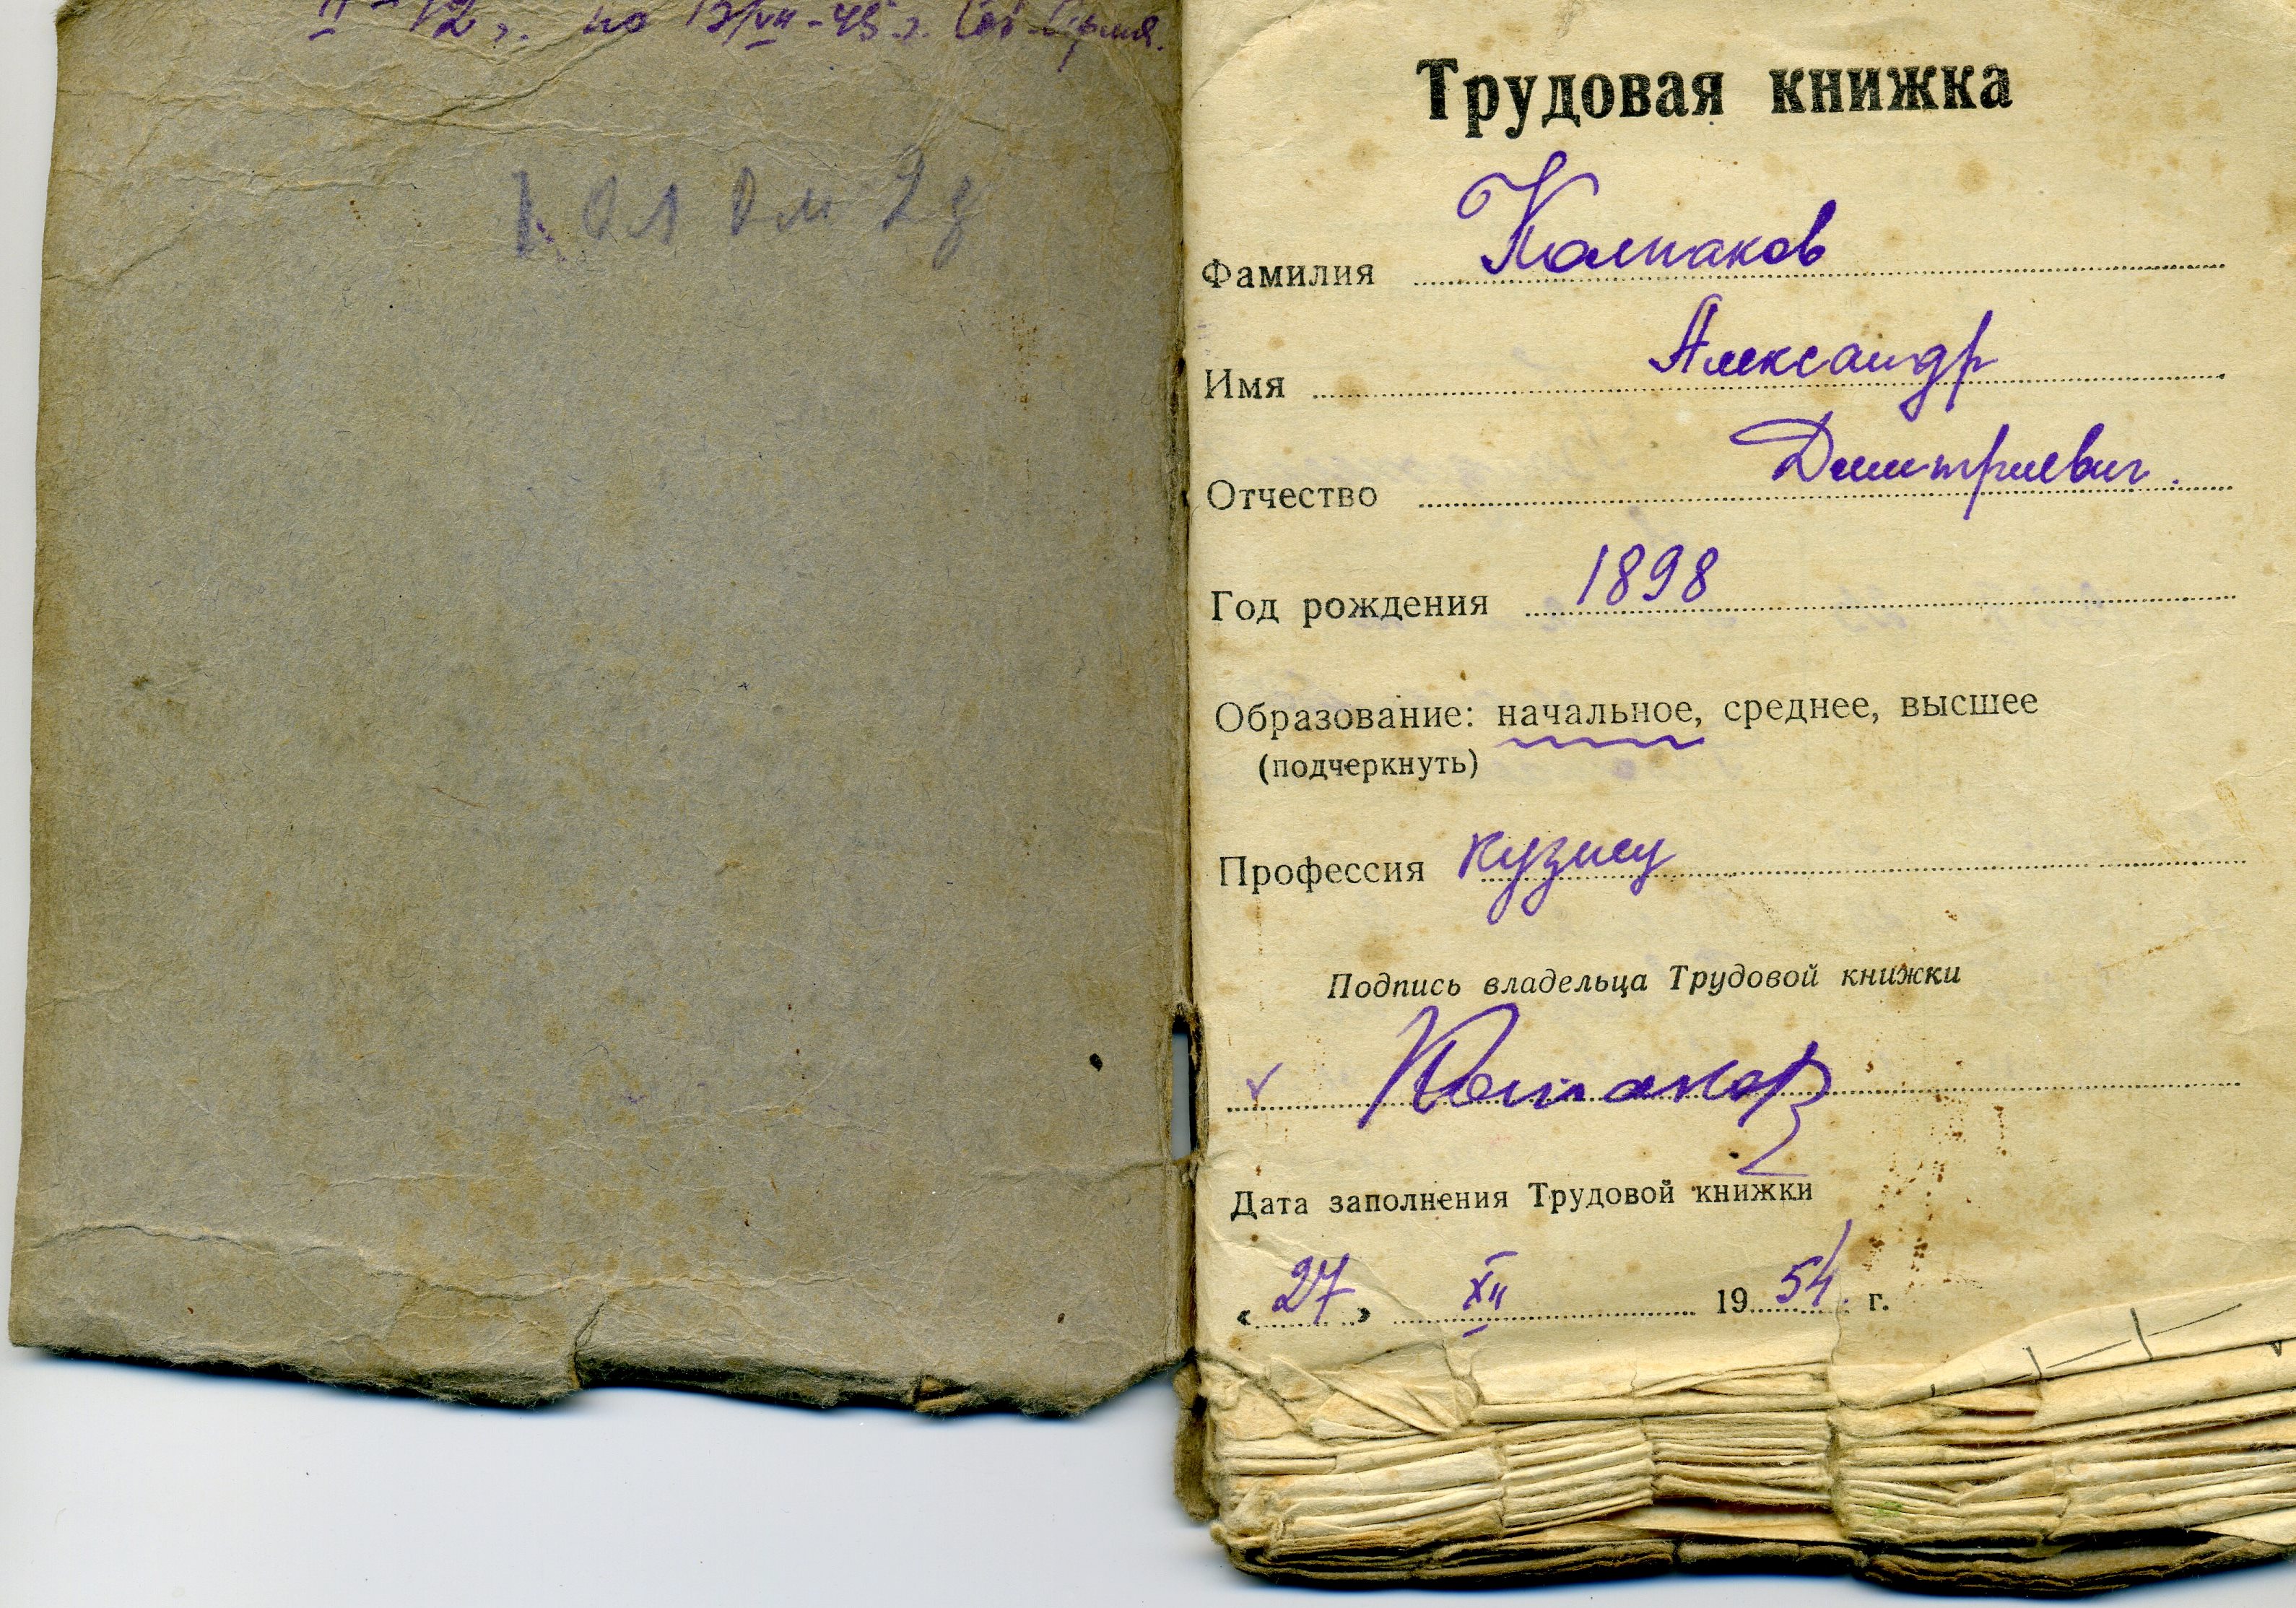 II - 42 г. по 13/VII - 45 г. Сов. Армия.
Трудовая книжка
Фамилия Колпаков
Имя Александр
Отчество Дмитриевич.
Год рождения 1898
Образование: начальное, среднее, высшее
(подчеркнуть)
Профессия кузнец
Подпись владельца Трудовой книжки
Колпаков
Дата заполнения Трудовой книжки
«27» XII 1954 г.